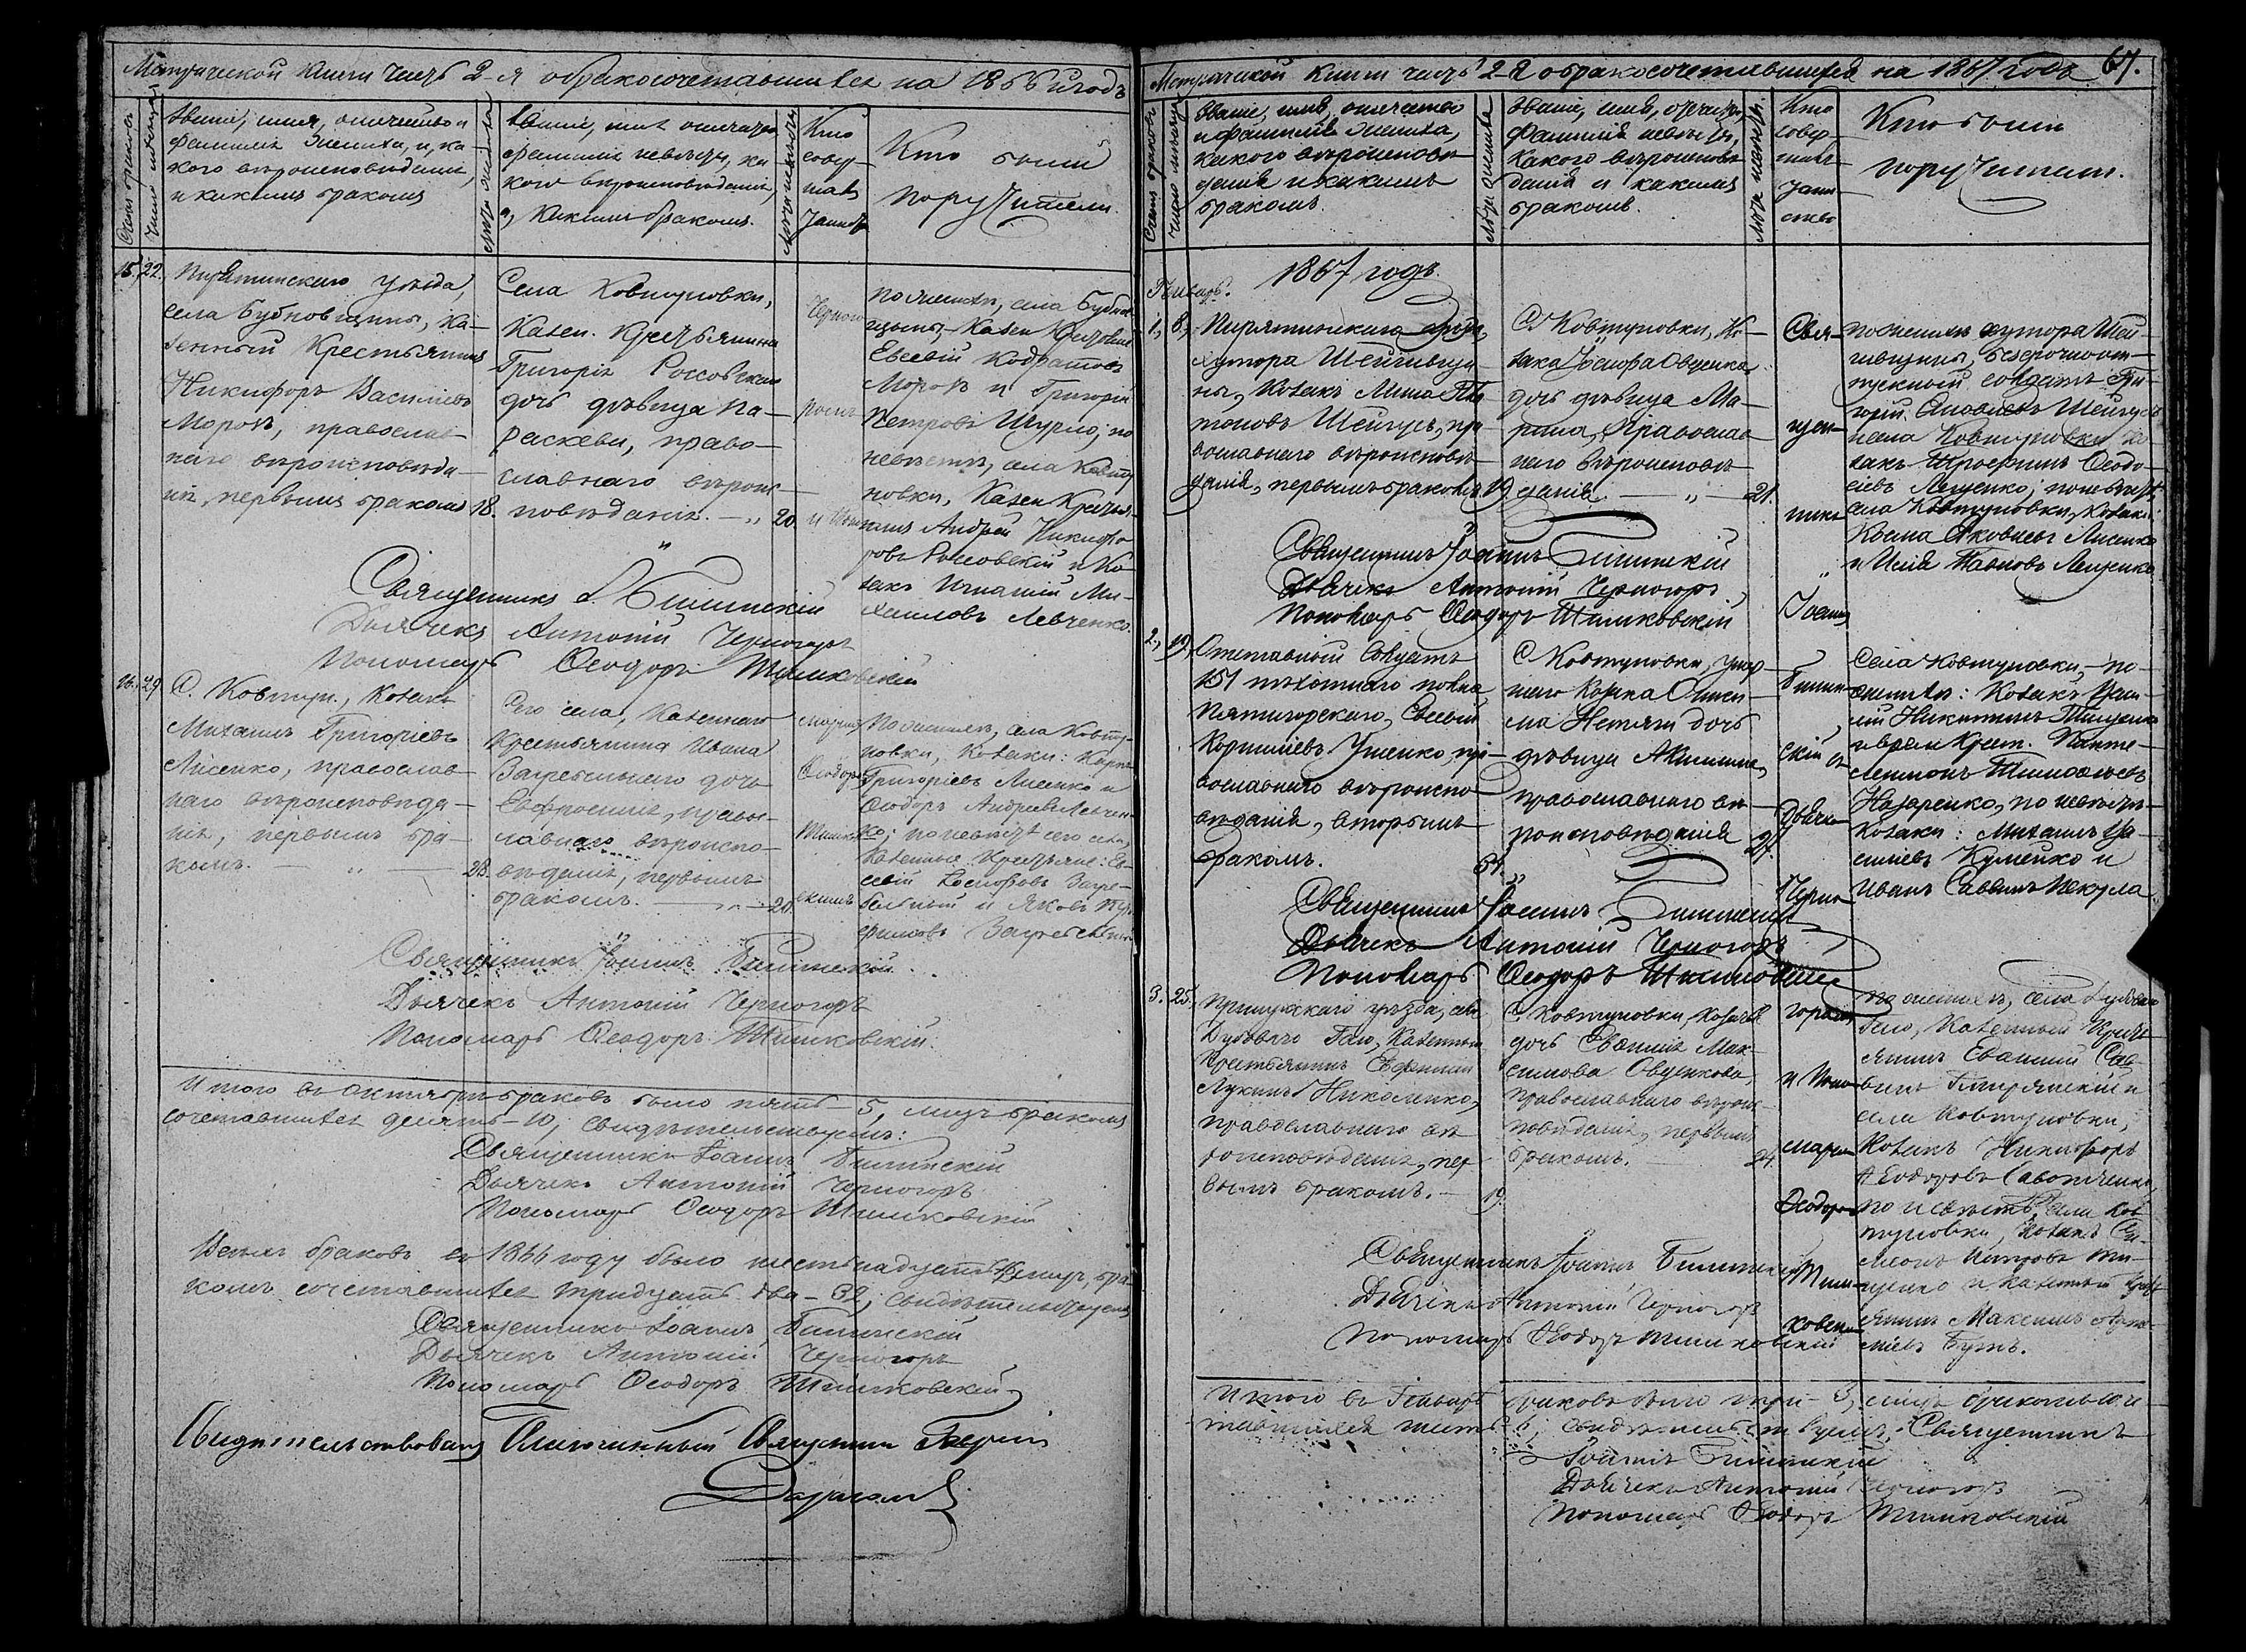 Метрической книги часть 2-я о бракосочетавшихся на 1866й годъ
Счетъ браковъ
Число месяца
Званіе, имя, отчество и
фамилія жениха, и, ка-
кого вероисповеданія,
и какимъ бракомъ
Лета жениха
Званіе, имя отчество,
фамилія невесты, ка
кого вероисповеданія,
и, какимъ бракомъ.
Лета невесты
Кто
совер-
шалъ
таинст.
Кто были
поручители.
15. 22.
Пирятинскаго уезда,
села Бубновщины, ка-
зенный крестьянинъ
Никифоръ Василіевъ
Морозъ, православ-
наго вероисповеда-
нія, первымъ бракомъ 18.
Села Ковтуновки,
казен. крестьянина
Григорія Россовскаго
дочь девица Па-
раскева, право-
славнаго вероис-
поведанія. — „ 20.
Черного
ромъ
и
По женихе, села Бубнов
щины, казен крестьяне
Евсевій Кодратовъ
Морозъ и Григорій
Петровъ Шурло; по
невесте, села Ковту
новки, казен крестья-
нинъ Андрей Никифо
ровъ Россовскій и ко-
закъ Игнатій Ми-
хаиловъ Левченко.
Священникъ І. Билинскій
Дьячекъ Антоній Черногоръ
Пономарь Ѳеодоръ Тимковскій
16. 29.
С. Ковтун., козакъ
Михаилъ Григоріевъ
Лисенко, православ-
наго вероисповеда-
нія, первымъ бра-
комъ. „ — 23.
Сего села, казеннаго
крестьянина Ивана
Загребельнаго дочь
Евфросинія, право-
славнаго вероиспо-
веданія, первымъ
бракомъ. — 20.
маремъ
Ѳеодор.
Тимков
скимъ
По женихе, села Ковту-
новки, козаки: Карпъ
Григоріевъ Лисенко и
Ѳеодоръ Андреевъ Левчен-
ко; по невесте сего села,
казенные крестьяне: Ев-
севій Загре-
бельный и Яковъ Тро
фимовъ Загребельный
Священникъ Іоаннъ Билинскій
Дьячекъ Антоній Черногоръ
Пономарь Ѳеодоръ Тимковскій.
Итого въ октябре браковъ было пять — 5, лицъ бракомъ
сочетавшихся десять — 10, свидетельствуемъ:
Священникъ Іоаннъ Билинскій
Дьячекъ Антоній Черногоръ
Пономарь Ѳеодоръ Тимковскій
Всехъ браковъ въ 1866 году было шестьнадцать, лицъ, бра
комъ сочетавшихся тридцать два — 32, свидетельствуемъ,
Священникъ Іоаннъ Билинскій
Дьячекъ Антоній Черногоръ
Пономарь Ѳеодоръ Тимковскій
Свидетельствовалъ Благочинный Священникъ Георгій
Метрической книги часть 2-я о бракосочетавшихся на 1867 годъ 67.
Счетъ браковъ
Число месяца
Званіе, имя, отчество
и фамилія жениха,
какого вероиспове-
данія и какимъ
бракомъ.
Лета жениха
Званіе, имя, отчество,
фамилія невесты,
какого вероиспове-
данія и какимъ
бракомъ.
Лета невесты.
Кто
совер-
шалъ
таин-
ство
Кто были
поручители.
1867 годъ
Генварь.
1. 8.
Пирятинскаго уезда,
хутора Шейгивщи-
ны, козакъ Мина Пла
тоновъ Шейгусъ, пра-
вославнаго вероиспове-
данія, первымъ бракомъ 19.
С. Ковтуновки, ко-
зака Іосифа Овценка
дочь девица Ма-
рина, православ-
наго вероиспове-
данія. — „ — 21.
Свя-
щен-
никъ
Іоаннъ
По женихе хутора Шей-
гивщины, безсрочноот-
пускный солдатъ Гри-
горій Шейгусъ
и села Ковтуновки ко-
закъ Трофимъ Ѳеодо-
сіевъ Лященко; по невесте
села Ковтуновки, козаки:
Косма Яковлевъ Лисенко
и Илія Павловъ Лященко
Священникъ Іоаннъ Билинскій
Дьячекъ Антоній Черногоръ
Пономарь Ѳеодоръ Тимковскій
2. 19.
Отставный солдатъ
151 пехотнаго полка
Пятигорскаго, Евсевій
Корниліевъ Ушенко, пра-
вославнаго вероиспо-
веданія, вторымъ
бракомъ. 34.
С. Ковтуновки, умер-
шаго козака Ониси-
ма Нетяги дочь
девица Акилина,
православнаго ве-
роисповеданія 27.
Билин-
скій съ
Дьяч-
Черно-
По
женихе: козакъ
Никитинъ Тищенко
и врем. крест. Панте-
леимонъ Тимоѳеевъ
Назаренко, по невесте
козаки: Михаилъ Ва-
силіевъ Куменко и
Иванъ Саввинъ Шкура
Священникъ Іоаннъ Билинскій
Дьячекъ Антоній Черногоръ
Пономарь Ѳеодоръ Тимковскій
3. 25.
Прилуцкаго уезда, села
Дубоваго Гаю, казенный
крестьянинъ Евфимій
Лукинъ Николенко,
православнаго ве-
роисповеданія, пер-
вымъ бракомъ. — 19.
С. Ковтуновки, козачья
дочь Евдокія Мак-
симова Овценкова,
православнаго вероис-
поведанія, первымъ
бракомъ. — 24.
горомъ
и поно-
маремъ
Ѳеодоромъ
Тим-
ковски
По женихе, села Дубоваго
Гаю, казенный кресть-
янинъ Евдокимъ Сав-
винъ и
села Ковтуновки,
козакъ Никифоръ
Ѳеодоровъ
по невесте села Ков
туновки, козакъ Си-
меонъ Петровъ Ти-
щенко и казенный крест
янинъ Максимъ Арте-
міевъ Бутъ.
Священникъ Іоаннъ Билинскій
Дьячекъ Антоній Черногоръ
Пономарь Ѳеодоръ Тимковскій
Итого въ Генваре браковъ было три — 3, лицъ бракомъ соче
тавшихся шесть — 6; свидетельствуемъ: Священникъ
Іоаннъ Билинскій
Дьячекъ Антоній Черногоръ
Пономарь Ѳеодоръ Тимковскій